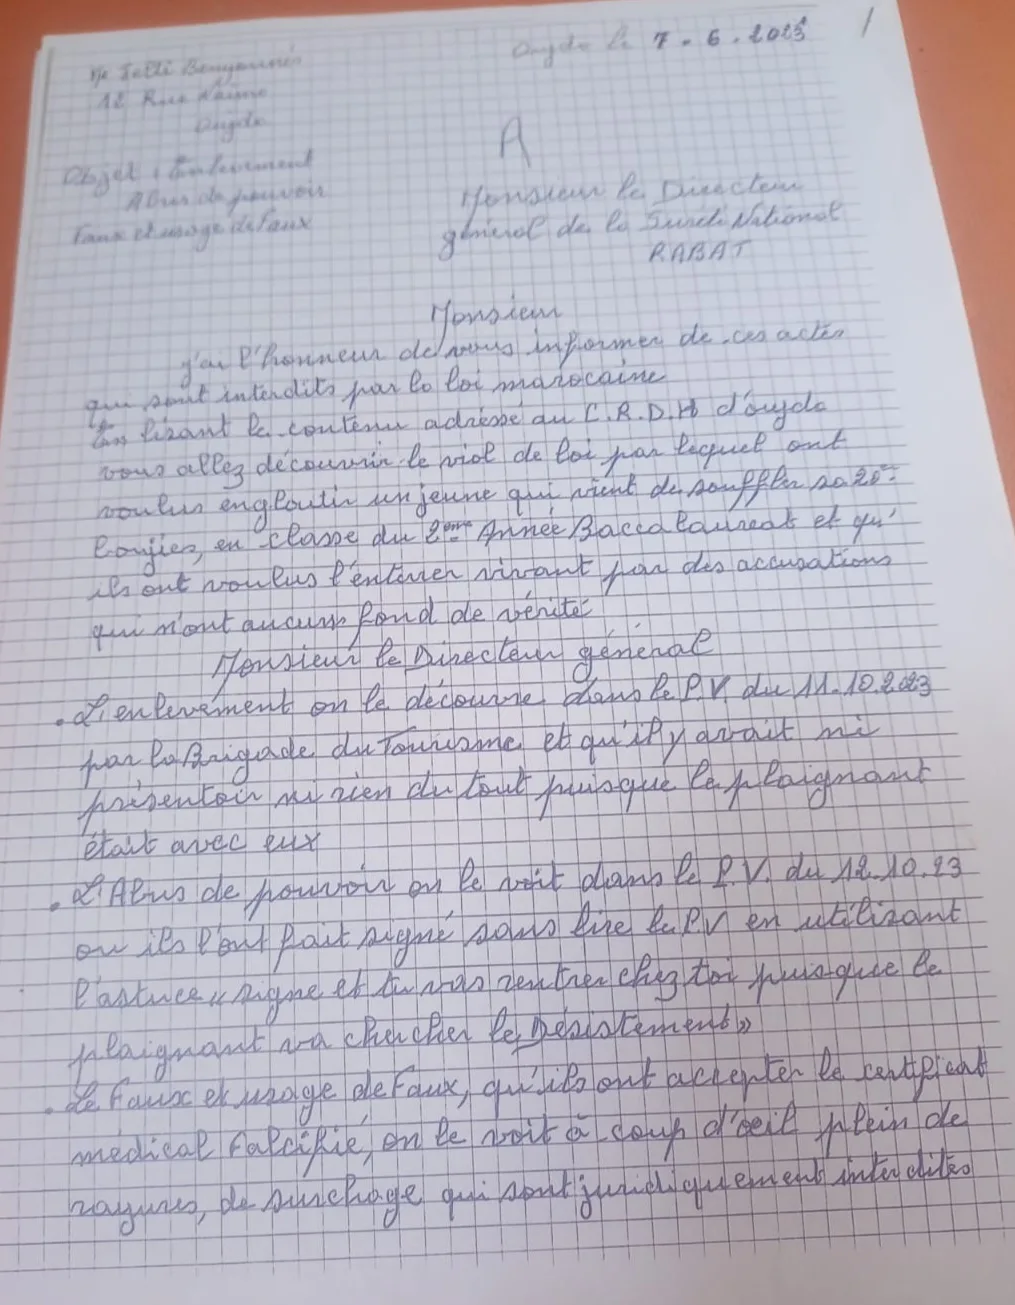 Oujda le 7-6-2025
1
Mr Benyounès
12 Rue Naïme
Oujda
Objet : Enlèvement
Abus de pouvoir
Faux et usage de faux
A
Monsieur le Directeur
général de la Sureté National
RABAT
Monsieur
j'ai l'honneur de vous informer de ces actes
qui sont interdits par la loi marocaine
En lisant le contenu adressé au C.R.D.H d'oujda
vous allez découvrir le viol de loi par lequel ont
voulus engloutir un jeune qui vient de souffler sa 20
boujies, en classe du 2eme Année Baccalaureat et qu'
ils ont voulus l'enterer vivant par des accusations
qui n'ont aucun fond de vérité
Monsieur le Directeur général
. L'enlevement on le découvre dans le P.V du 11.10.2023
par la Brigade du Tourisme et qu'il y avait ni
présentoir ni rien du tout puisque le plaignant
était avec eux
. L'Abus de pouvoir on le voit dans le P.V. du 12.10.23
ou ils l'ont fait signé sans lire le PV en utilisant
l'astuce « signe et tu vas rentrer chez toi puisque le
plaignant va chercher le Désistement »
. Le faux et usage de faux, qu'ils ont accepter le certificat
médical falcifié, on le voit à coup d'œil plein de
rayures, de surchage qui sont juridiquement interdites